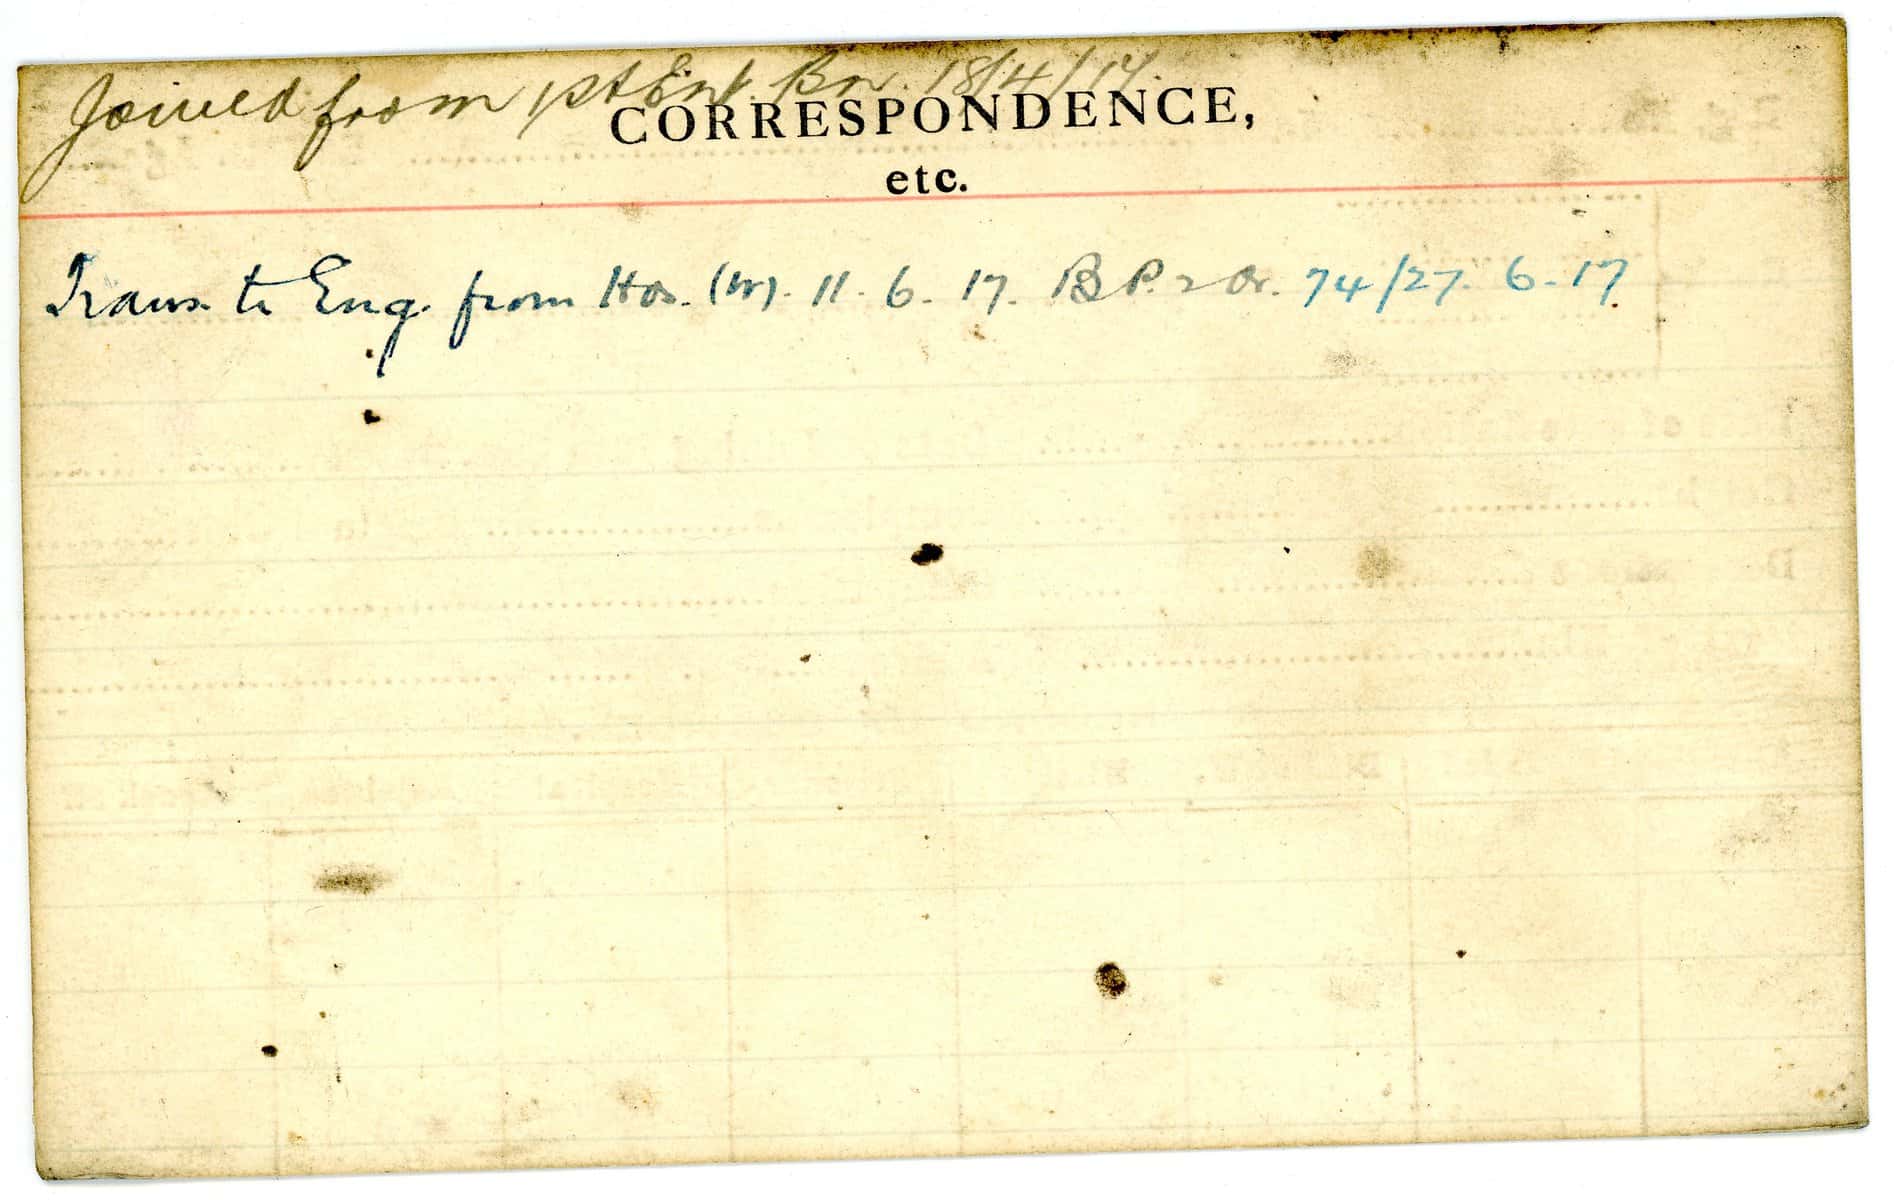 Joined from 1st Ent. Bn. 18/4/17.
CORRESPONDENCE,
etc.
Trans. to Eng. from Hos. (W). 11. 6. 17. B P. 2 Or. 74/27. 6. 17.